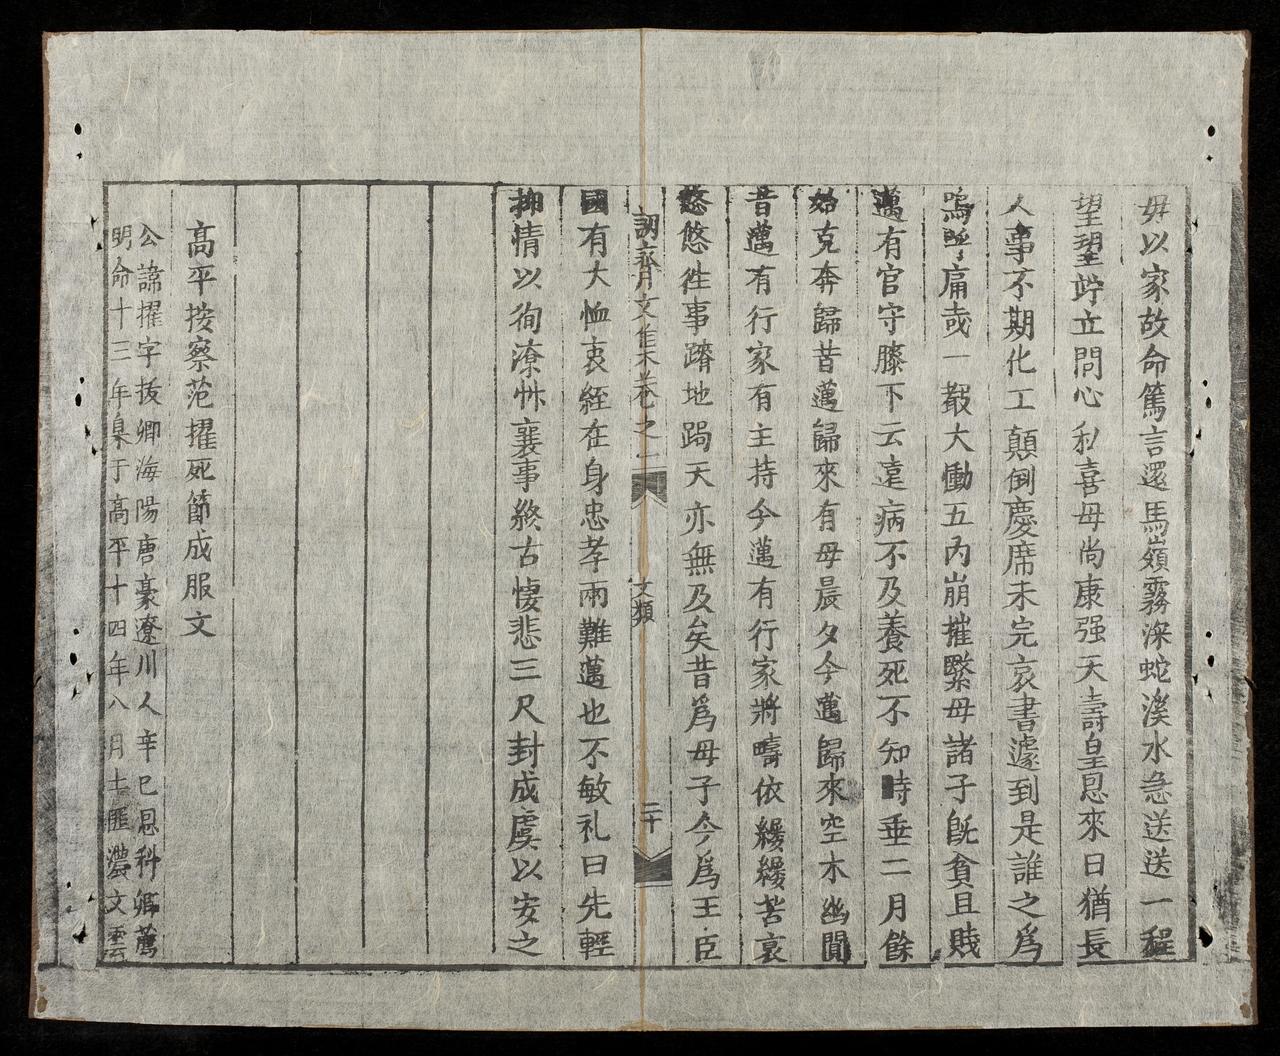 毋以家故命篤言還馬嶺霧深蛇溪水急送送一程
望望竚立問心私喜母尚康强天壽皇恩來日猶長
人事不期化工顛倒慶席未完哀書遽到是誰之爲
嗚呼痛哉一報大慟五內崩摧繄母諸子旣貧且賤
邁有官守膝下云遠病不及養死不知時垂二月餘
始克奔歸昔邁歸來有母晨夕今邁歸來空木幽閴
昔邁有行家有主持今邁有行家將疇依縵縵苦哀
悠悠徃事蹐地跼天亦無及矣昔爲母子今爲王臣
訒齋月文隹禾卷之二 文類 二十
國有大恤衷絰在身忠孝兩難邁也不敏礼曰先輕
抑情以徇潦艸襄事終古悽悲三尺封成虞以安之
高平按察范擢死節成服文
公諱擢字拔卿海陽唐豪遼川人辛巳恩科鄉薦
明命十三年臬于高平十四年八月土匪濃文雲